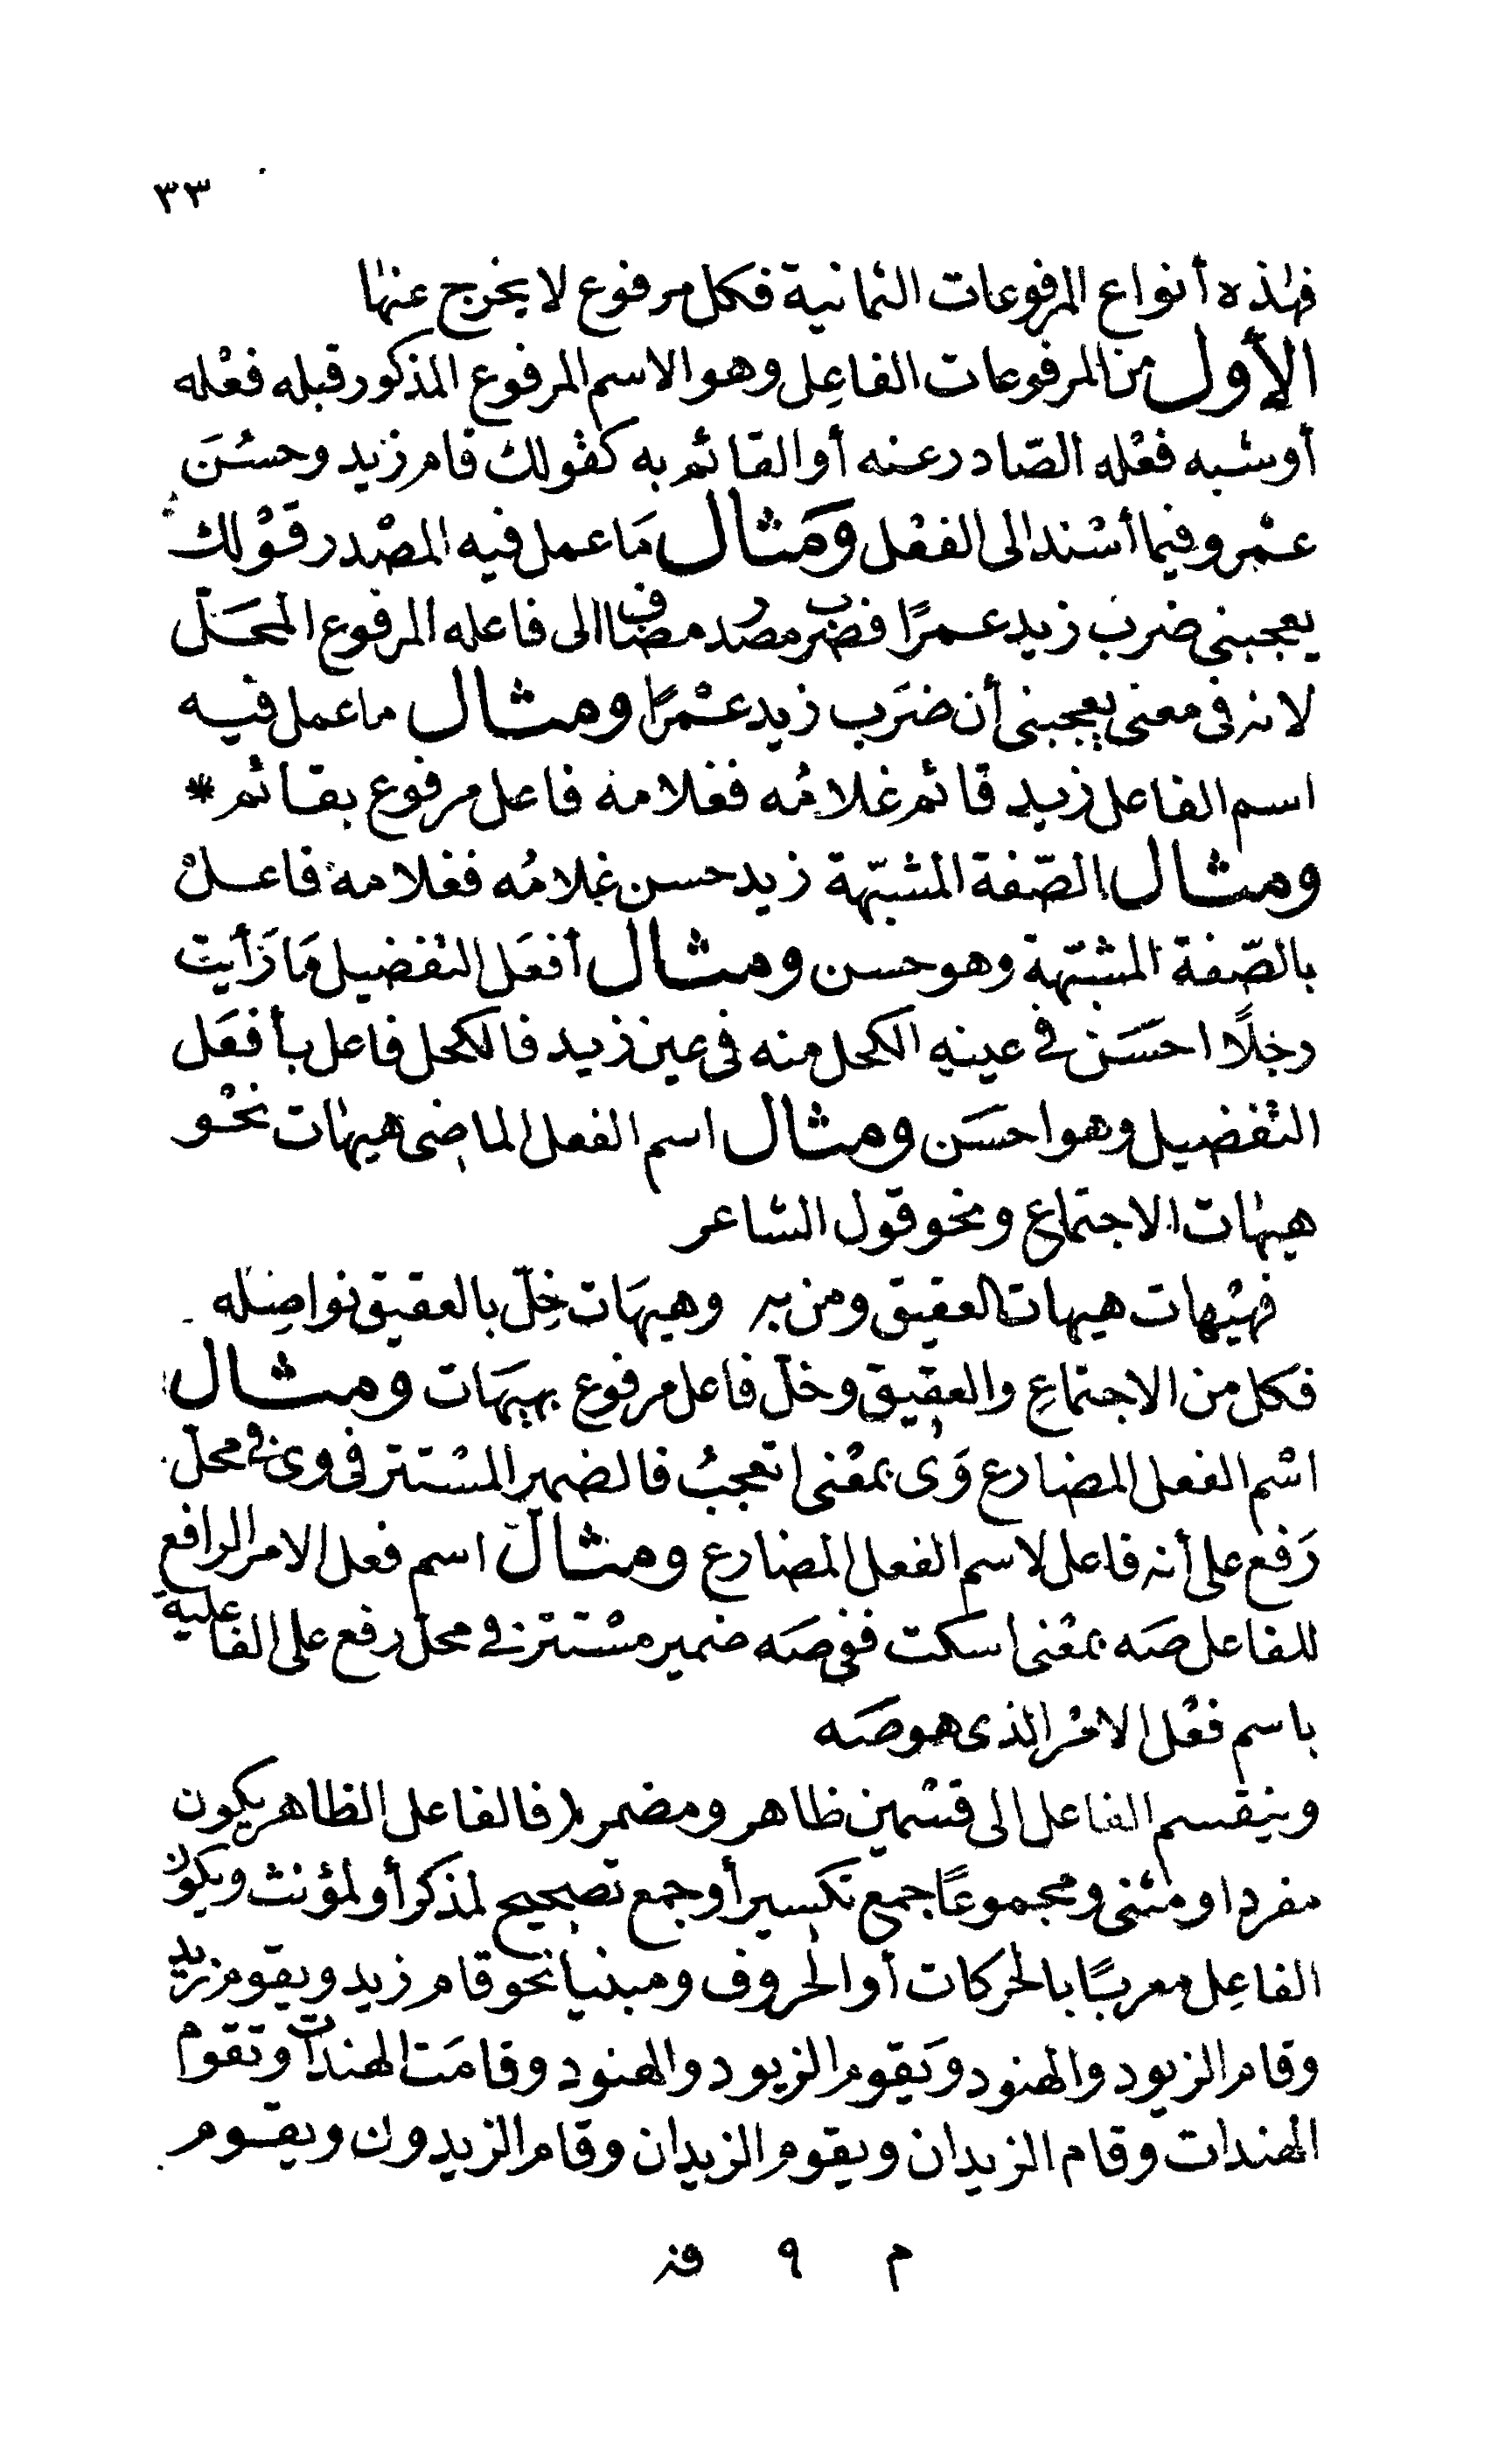 ٣٣
فهذه أنواع المرفوعات الثمانية فكل مرفوع لا يخرج عنها
الأول من المرفوعات الفاعِل وهو الاسم المرفوع المذكور قبله فعْله
أو شبه فعْله الصّادر عنه أو القائم به كقولك قام زيد وحسُنَ
عمْرو فيما أسْند الى الفعْل ومَثال مَا عمل فيه المصْدر قوْلك
يعجبنى ضرب زيد عمرًا فضرب مصدر مضاف الى فاعله المرفوع المحَلّ
لانه فى معنى يعجبنى أن ضرَب زيد عمْرًا ومثال ما عمل فيه
اسم الفاعل زيد قائم غلامُه فغلامه فاعل مرفوع بقائم *
ومثال الصّفة المشبّهة زيد حسن غلامُه فغلامه فاعل
بالصّفة المشبّهة وهو حسن ومثال أفعَل التفضيل مَا رَأيت
رجلًا احسَن فى عينه الكحل منه فى عين زيد فالكحل فاعل بأفعَل
التفضيل وهو احسَن ومثال اسم الفعل الماضى هيهات نحْو
هيهات الاجتماع ونحو قول الشاعر
فهيْهات هيهات العقيق ومن به وهيهَات خِلّ بالعقيق نواصِله
فكل من الاجتماعِ والعقيق وخلّ فاعل مرفوع بهيهَات ومثال
اسْم الفعل المضارع وَى بمعْنى اتعجبُ فالضمير المسْتتر فى وى فى محلّ
رَفع على أنه فاعل لاسم الفعل المضارع ومثال اسم فعل الامر الرافع
للفاعل صَه بمعْنى اسكت ففى صَه ضمير مسْتتر فى محلّ رفع على الفاعلية
باسم فعْل الامْر الذى هو صَه
وينقسم الفاعل الى قسْمين ظاهر ومضمر فالفاعل الظاهر يكون
مفردا ومثنى ومجموعًا جمع تكسير أو جمع تصحيح لمذكر أو لمؤنث ويكون
الفاعِل معربًا بالحركات أو الحروف ومبنيا نحو قام زيد ويقوم زيد
وقام الزيود والهنود وَيقوم الزيود والهنود وقامَت الهندات وتقوم
الهندات وقام الزيدان ويقوم الزيدان وقام الزيدون ويقوم
م ٩ فة